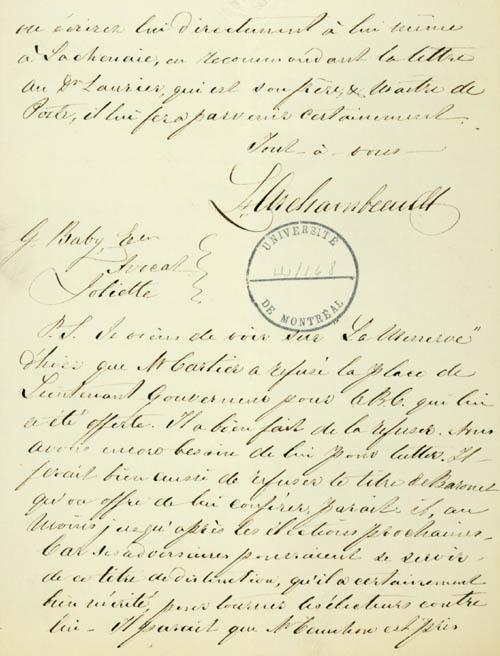 ou écrirez lui directement à lui même
à Lachenaie, en recommandant la lettre
au Dr Laurier, qui est son frère, & Maitre de
Poste, il lui fera parvenir certainement.
Tout - à - vous -
L. Archambeault
G. Baby, Ecr
Avocat
Joliette
UNIVERSITÉ
DE MONTRÉAL
P.S. Je viens de voir sur "La Minerve"
d'hier que Mr Cartier a refusé la place de
Lieutenant Gouverneur pour le B.C. qui lui
a été offerte. Il a bien fait de la refuser. Nous
avons encore besoin de lui pour lutter. Il
ferait bien aussi de refuser le titre de Baronet
qu'on offre de lui conférer, parait-il, au
moins jusqu'après les élections prochaines -
Car ses adversaires pourraient se servir
de ce titre de distinction, qu'il a certainement
bien mérité, pour tourner les électeurs contre
lui - Il parait que Mr est près